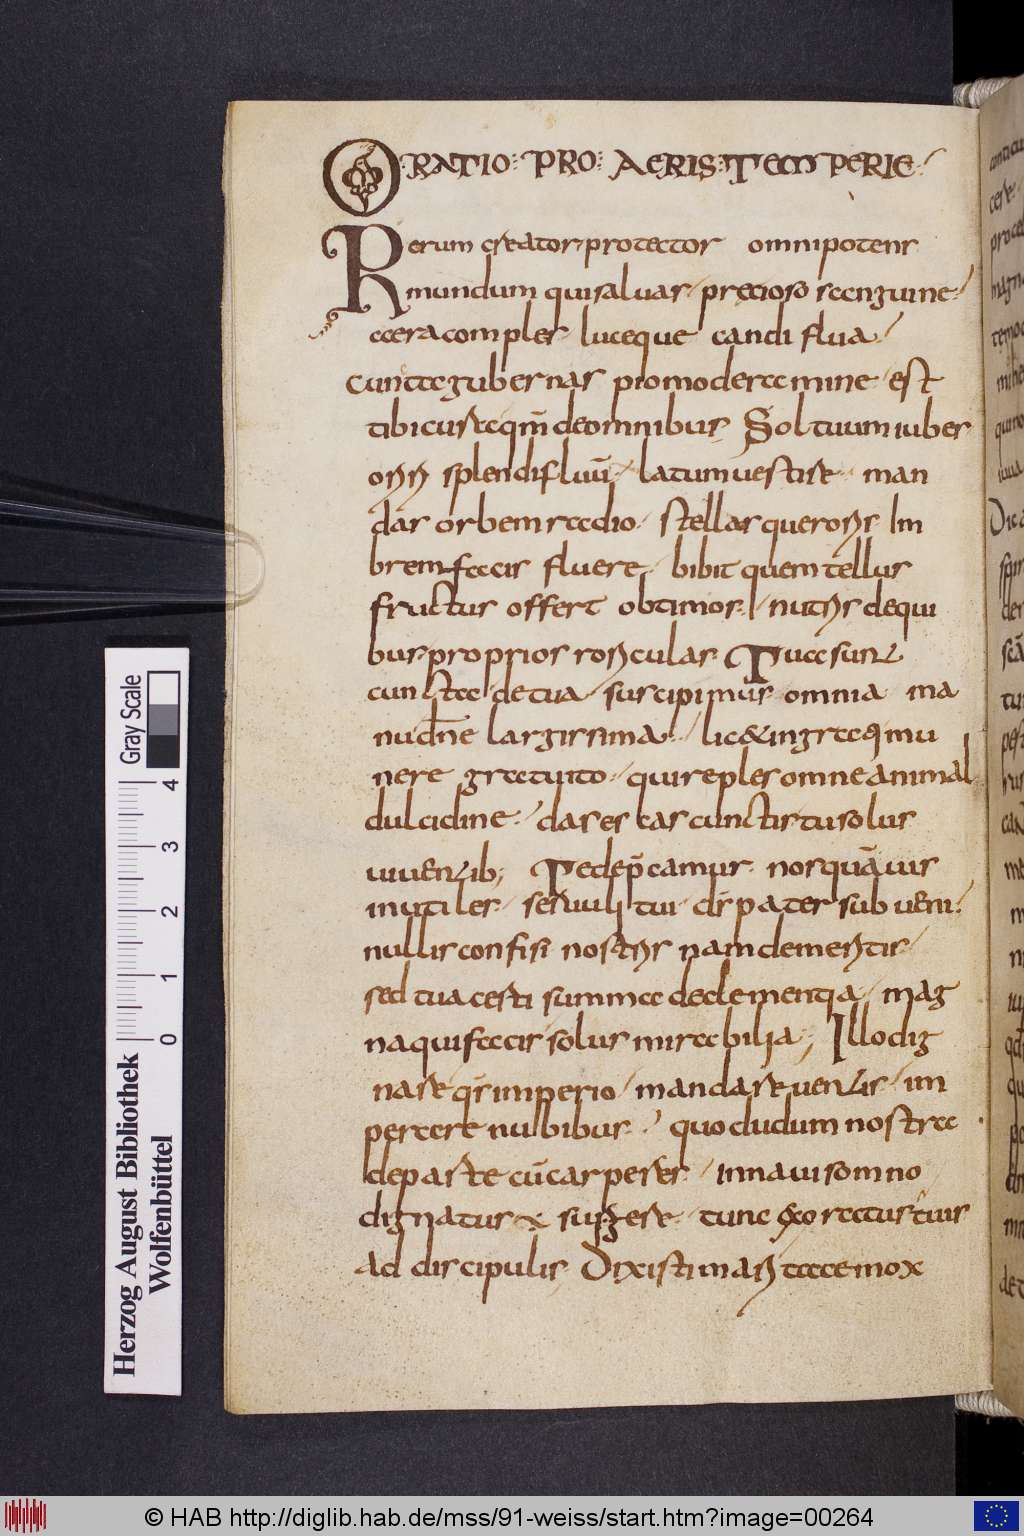 ORATIO PRO AERIS TEMPERIE
Rerum creator protector omnipotens
mundum qui saluas precioso sanguine
aera comples luceque candiflua
cuncta gubernas pio moderamine est
tibi cura qm̄ de omnibus Sol tuum iubes
orin splendifluū latum uestire man
das orbem radio stellas que oris Im
brem facis fluere bibit quem tellus
fructus offert obtimos nutris de qui
bus proprios rosculas Tua sunt
cuncta de tua suscipimus omnia ma
nu dn̄e largissima lic& ingratiq mu
nere gratuito qui reples omne animal
dulcidine das escas cunctis tu solus
uiuentib; Te dep̄camur nos quāuis
inutiles seruuli tui dir pater subueni
nullis confisi nostris nam de meritis
sed tua certi summa de clementia mag
na qui facis solus mirabilia; Illo dig
nare qs imperio mandare uentis im
perare nubibus quo dudum nostra
de parte cū carperes in naui somno
dignatus surgere tunc exoratus tuis
ad discipulis Dixisti mari tace mox
Gray Scale
4
3
2
1
0
Herzog August Bibliothek
Wolfenbüttel
© HAB http://diglib.hab.de/mss/91-weiss/start.htm?image=00264